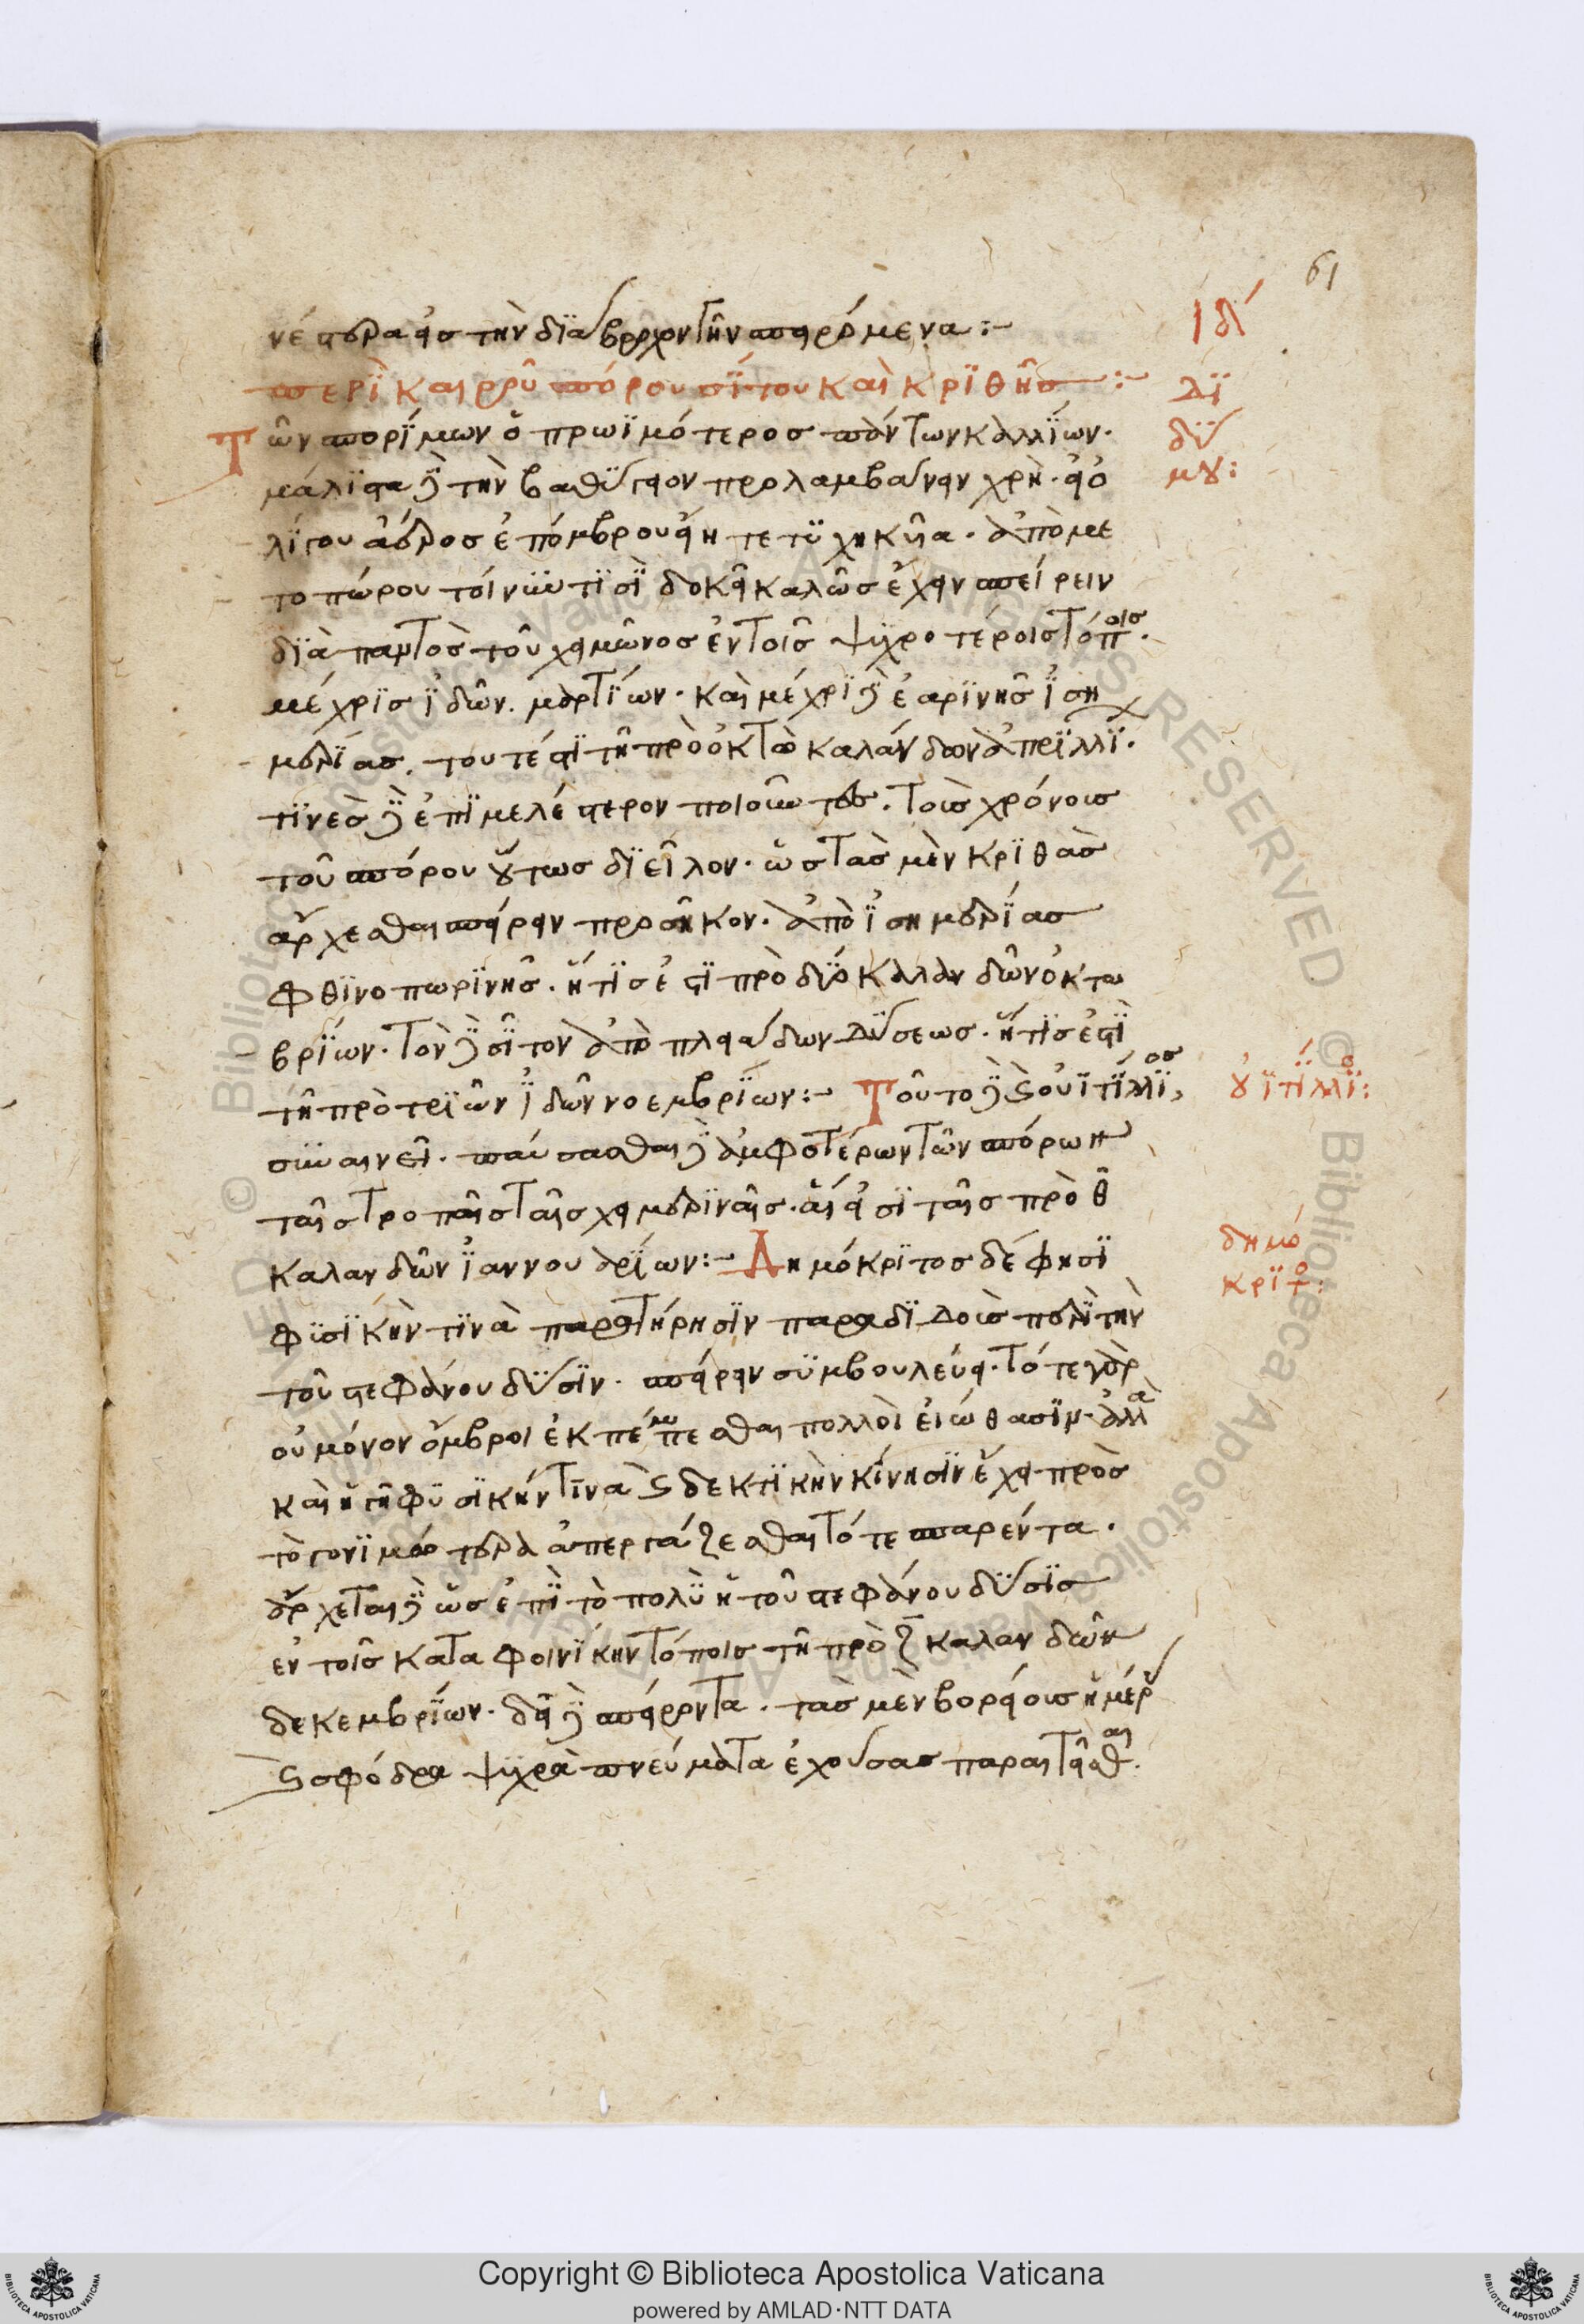 61
νέστερα εἰς τὴν διάβροχον γῆν σπειρόμενα :-
ιδ´
περὶ καιροῦ σπόρου σίτου καὶ κριθῆς :-
Δι
δύ
μου :
Τῶν σπορίμων ὁ πρωϊμότερος πάντων καλλίων.
μάλιστα δὲ τὴν βαθύγειον προλαμβάνειν χρὴ. εἰ ὀ
λίγου ἀέρος ἐπόμβρου εἴη τετυχηκυῖα. ἀπὸ με
τοπώρου τοίνυν τισὶ δοκεῖ καλῶς ἔχειν σπείρειν
διὰ παντὸς τοῦ χειμῶνος ἐν τοῖς ψυχροτέροις τόποις.
μέχρις ἰδῶν. μαρτίων. καὶ μέχρι δὲ ἐαρινῆς ἰση
μερίας. τουτέστι τῆ πρὸ ὀκτὼ καλάνδων ἀπριλλί.
τινὲς δὲ ἐπιμελέστερον ποιοῦντες. τοὺς χρόνους
τοῦ σπόρου οὕτως διεῖλον. ὡς τὰς μὲν κριθὰς
ἄρχεσθαι σπείρειν προσῆκον. ἀπὸ ἰσημερίας
φθινοπωρινῆς. ἥτις ἐστὶ πρὸ δύο καλανδῶν ὀκτω
βρίων. τὸν δὲ σῖτον ἀπὸ πλειάδων δύσεως. ἥτις ἐστὶ
τῆ πρὸ τριῶν ἰδῶν νοεμβρίων :- Τοῦτο δὲ καὶ οὐιτίλλιος
οὐϊτίλλιο :
συναινεῖ. παύσασθαι δὲ ἀμφοτέρων τῶν σπόρων
ταῖς τροπαῖς ταῖς χειμεριναῖς. αἵ εἰσι ταῖς πρὸ θ
καλανδῶν ἰαννουαρίων :- Δημόκριτος δέ φησι
δημό
κριτο :
φυσικήν τινα παρατήρησιν παραδιδοὺς περὶ τὴν
τοῦ στεφάνου δύσιν. σπείρειν συμβουλεύει. τότε γὰρ
οὐ μόνον ὄμβροι ἐκπέμπεσθαι πολλοὶ εἰώθασιν. ἀλλὰ
καὶ ἡ γῆ φυσικήν τινα καὶ δεκτικὴν κίνησιν ἔχει πρὸς
τὸ γονιμώτερα ἀπεργάζεσθαι τότε σπαρέντα.
ἄρχεται δὲ ὡς ἐπὶ τὸ πολὺ ἡ τοῦ στεφάνου δύσις
ἐν τοῖς κατα φοινίκην τόποις τῆ πρὸ ζ καλανδῶν
δεκεμβρίων. δεῖ δὲ σπείροντα. τὰς μὲν βορείους ἡμέρας
καὶ σφόδρα ψυχρὰ πνεύματα ἐχούσας παραιτεῖσθαι.